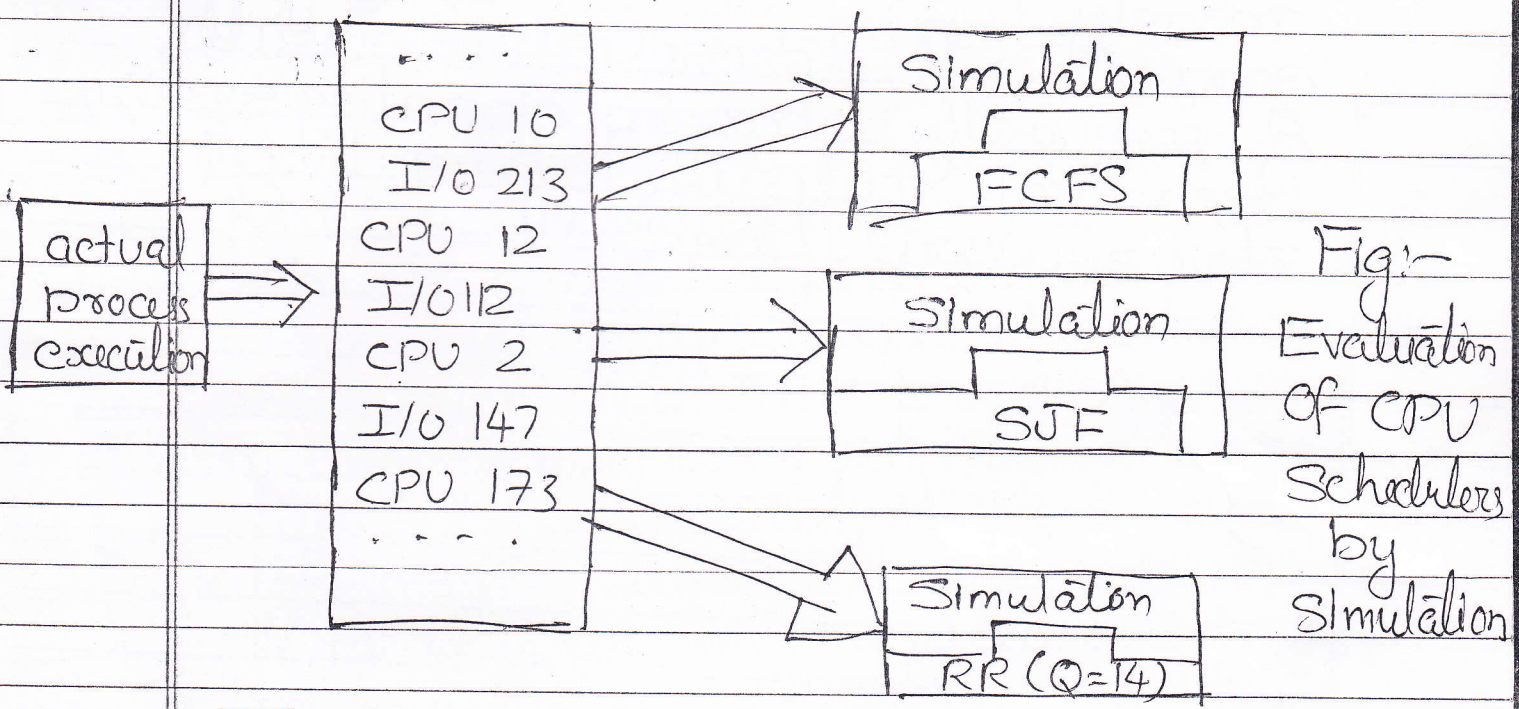 actual
process
execution
. . . .
CPU 10
I/O 213
CPU 12
I/O 112
CPU 2
I/O 147
CPU 173
. . . .
Simulation
FCFS
Simulation
SJF
Simulation
RR (Q=14)
Fig:-
Evaluation
Of CPU
Schedulers
by
Simulation